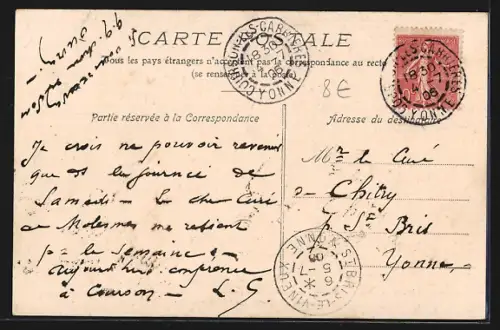 CARTE POSTALE
Tous les pays étrangers n'acceptent pas la correspondance au recto
(se renseigner à la poste)
8€
Partie réservée à la Correspondance
Adresse du destinataire
Je crois ne pouvoir revenir
que la journée de
Samedi - Le cher Curé
de Molesmes me retient
pr la semaine -
aujourd'hui conférence
à Courson - L. G.
Mr le Curé
de Chitry
p. St Bris
Yonne
COURSON-LES-CARRIÈRES
YONNE
ST BRIS-LE-VINEUX
YONNE